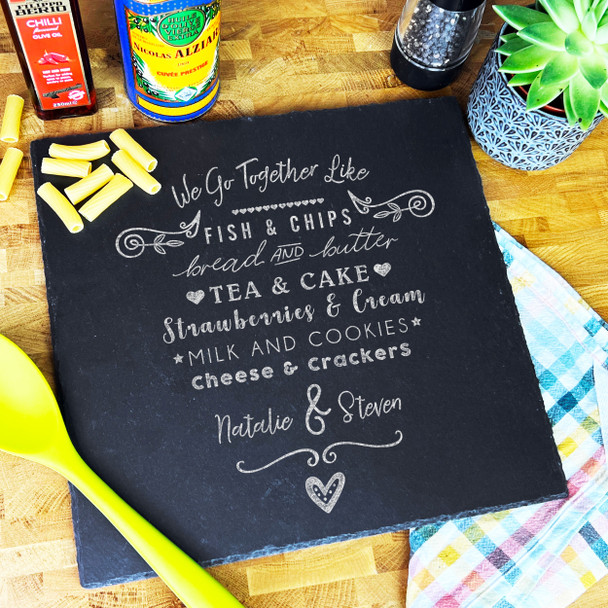 BERIO
CHILLI
OLIVE OIL
NICOLAS ALZIARI
CUVÉE PRESTIGE
We Go Together Like
FISH & CHIPS
bread AND butter
TEA & CAKE
Strawberries & Cream
MILK AND COOKIES
cheese & crackers
Natalie & Steven